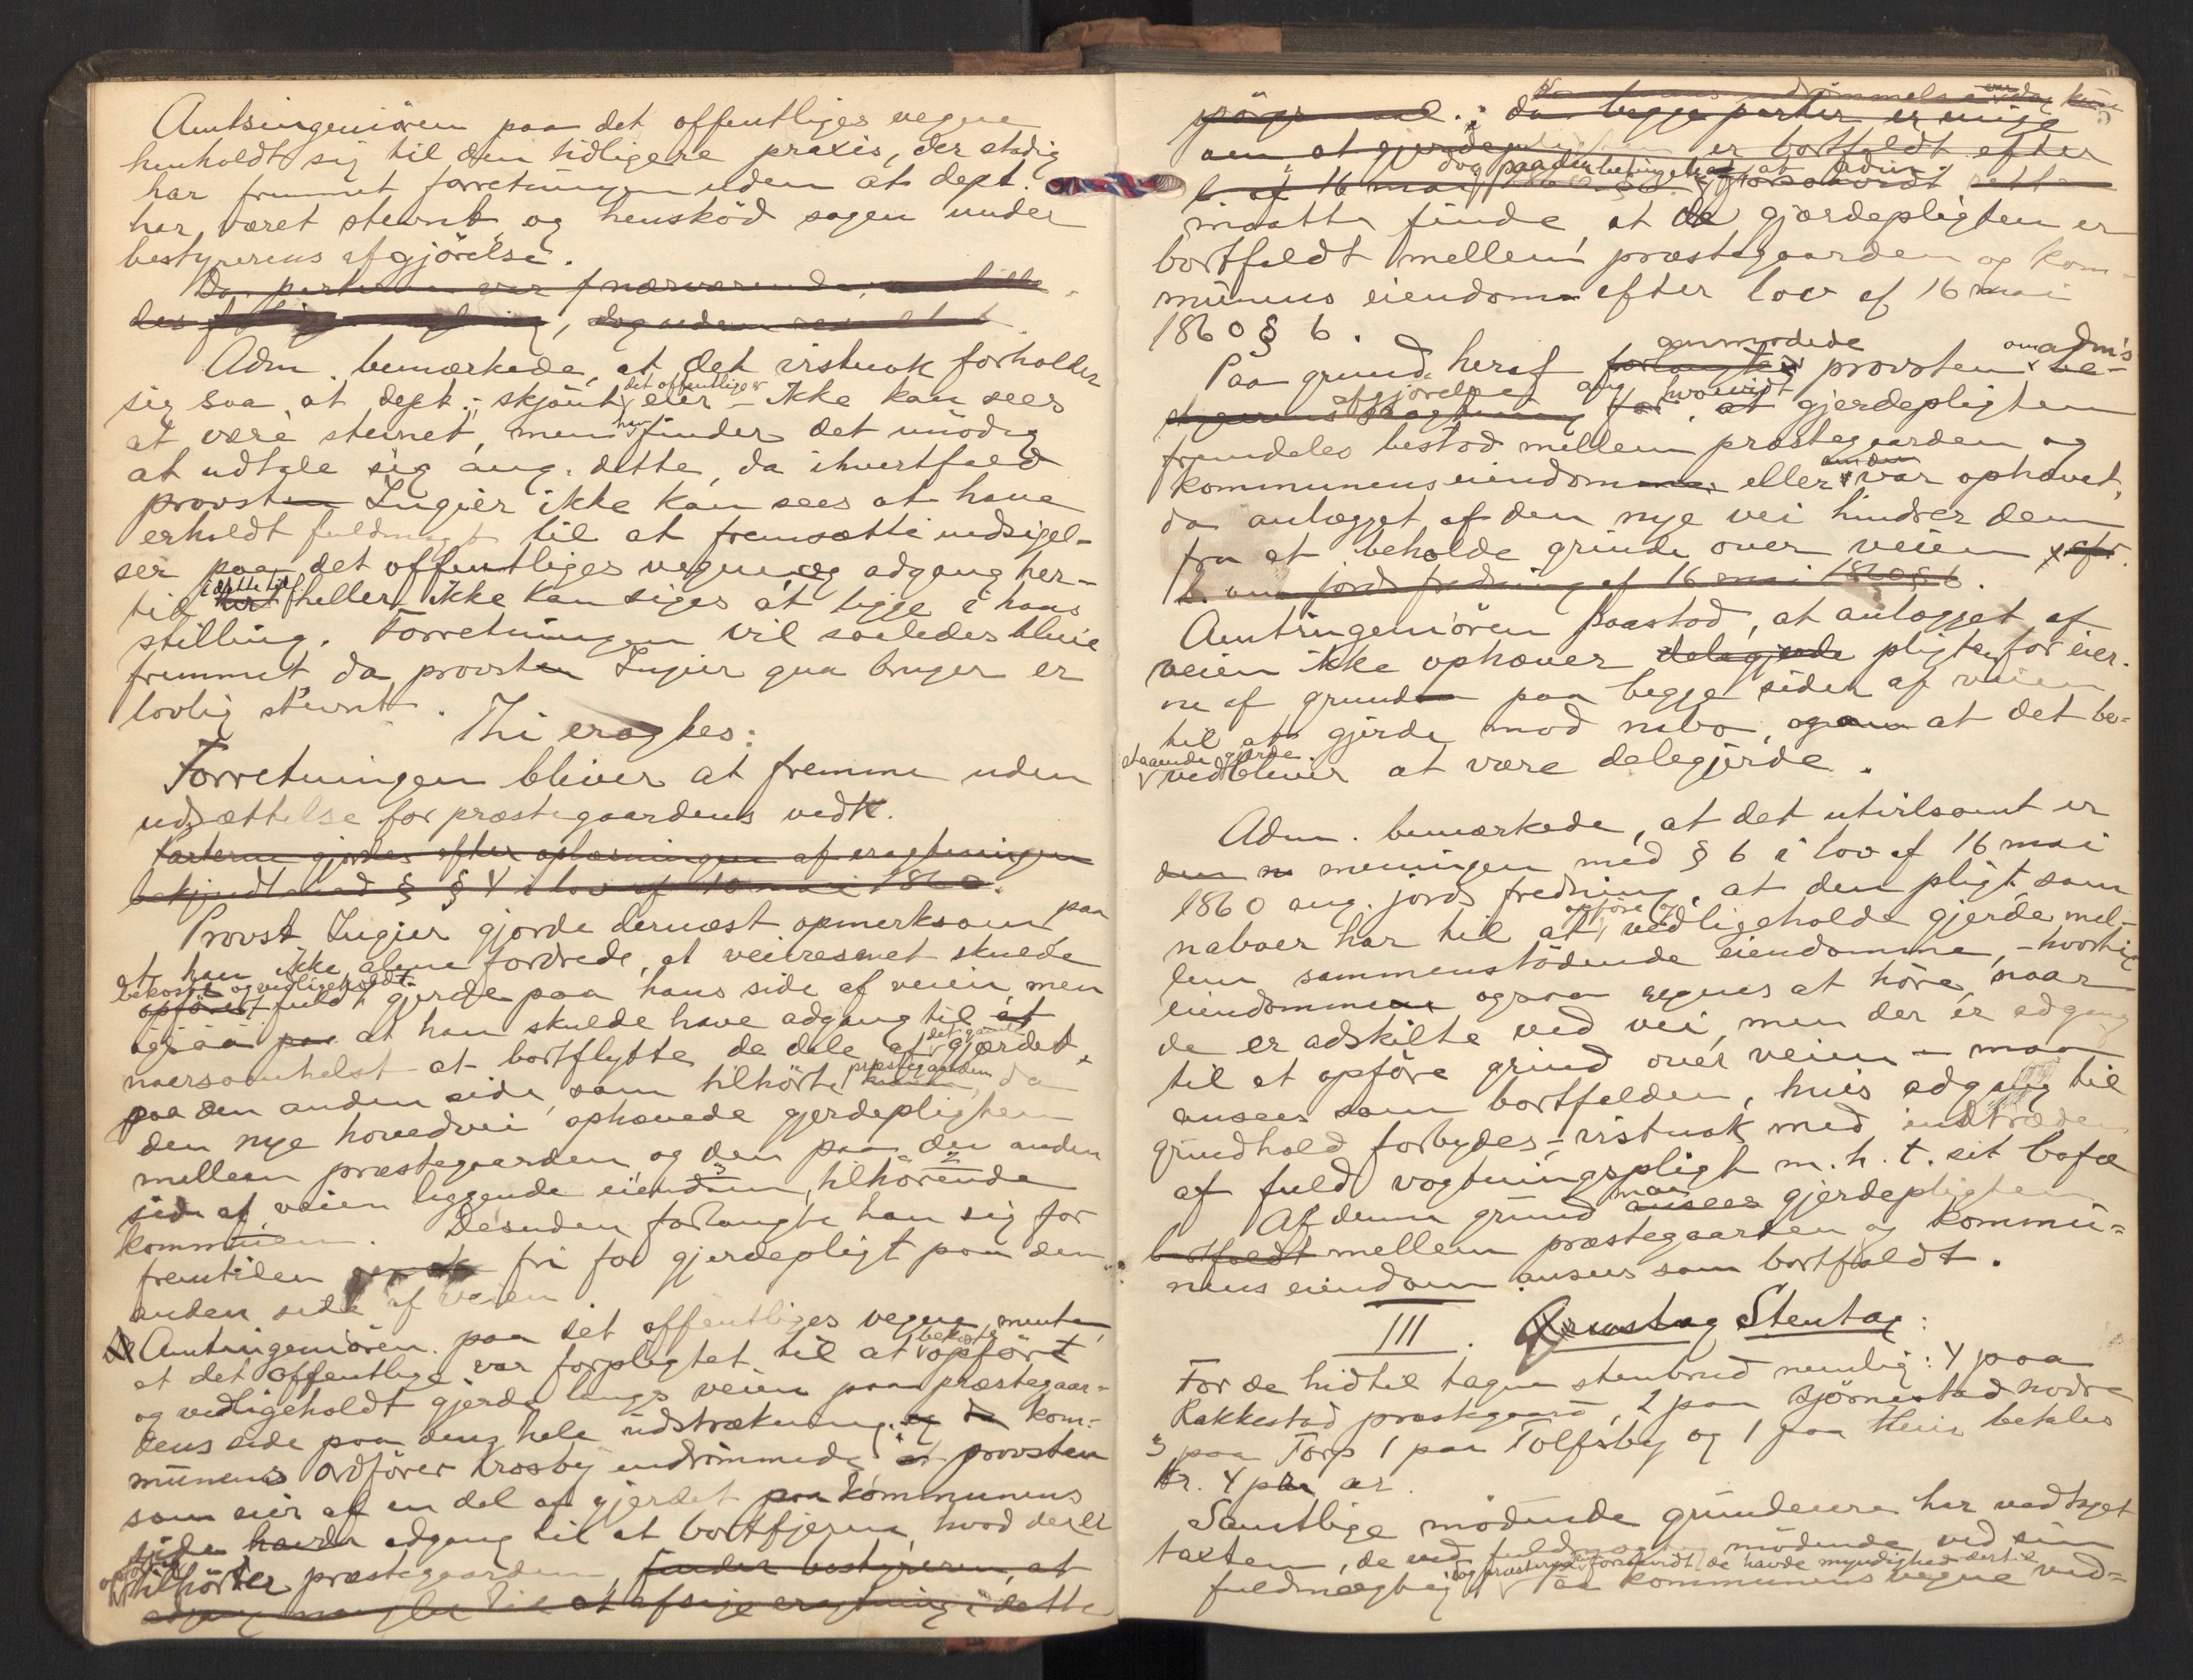 Amtsingeniören paa det offentliges vegne
henholdt sig til den tidligere praxis, der stadig
har fremmet forretningen uden at dept.
har været stevnt, og henskjöd sagen under
bestyrerens afgjörelse.
Da parterne var nærværende
dog uden resultat
Adm. bemærkede, at det vistnok forholder
sig saa, at dept. – skjönt det offentlige er eier – ikke kan sees
at være stevnet, men han finder det unödig
at udtale sig ang. dette, da ihvertfald
provst Ingier ikke kan sees at have
erholdt fuldmagt til at fremsætte indsigel-
ser paa det offentliges vegne, og adgang her-
til heller ikke kan siges at ligge i hans
stilling. Forretningen vil saaledes blive
fremmet da provsten Ingier qua bruger er
lovlig stevnt.
Thi eragtes:
Forretningen bliver at fremme uden
udsættelse for præstegaardens vedk.
Parterne gjordes efter oplæsningen af eragtningen
bekjendt med § 4 i lov af 16 mai 1860.
Provst Ingier gjorde dernæst opmerksom paa
at han ikke alene fordrede, at veivæsenet skulde
bekoste og vedligeholdt
opföret fuldt gjerde paa hans side af veien, men
ogsaa paa at han skulde have adgang til at
naarsomhelst at bortflytte de dele af det gamle gjærdet,
paa den anden side, som tilhörte præstegaarden, da
den nye hovedvei ophævede gjerdepligten
mellem præstegaarden og den paa den anden
side af veien liggende eiendom, tilhörende
kommunen. Desuden forlangte han sig for
fremtiden fri for gjerdepligt paa den
anden side af veien
Amtsingeniören paa det offentliges vegne mente,
at det offentlige var forpligtet til at bekoste opfört
og vedligeholdt gjerde langs veien paa præstegaar-
dens side paa deng hele udstrækning og da kom-
munens ordförer Krosby indrömmede at provsten
som eier af en del af gjerdet paa kommunens
side havde adgang til at bortfjerne, hvad der er
tilhörer præstegaarden, finder bestyreren, at
adgang mangler til at afsige eragtning i dette
spörgsmaal. da begge parter er enige
om at gjerdepligten er bortfaldt efter
l. af 16 mai dog paa den betingelse, at adm. forsaavidt
maatte finde, at de gjærdepligten er
bortfaldt mellem præstegaarden og kom-
munens eiendom efter lov af 16 mai
1860 § 6.
Paa grund heraf forlangte anmodede provsten om adm's
afgjörelse ang. hvorvidt at gjerdepligten
fremdeles bestod mellem præstegaarden og
kommunens eiendomme eller om den var ophævet,
da anlægget af den nye vei hindrer dem
fra at beholde grinde over veien x efr.
l. om jords fredning af 16 mai 1860 § 6.
Amtsingeniören paastod, at anlægget af
veien ikke ophæver delegjerde pligten for eier-
ne af grunden paa begge sider af veien
til at gjerde mod nabo, og at det be-
staaende gjerde
vedbliver at være delegjerde.
Adm. bemærkede, at det utvilsomt er
den m meningen med § 6 i lov af 16 mai
1860 ang. jords fredning, at den pligt, som
naboer har til at opföre og vedligeholde gjerde mel-
lem sammenstödende eiendomme, – hvortil
eiendommene ogsaa regnes at höre, naar
de er adskilte ved vei, men der er adgang
til at opföre grind over veien – maa
ansees som bortfalden, hvis adgang til
grindhold forbydes, – vistnok med indtræden
af fuld vogtningspligt m. h. t. sit bofæ
Af denne grund maa ansees gjerdepligten
bortfaldt mellem præstegaarden og kommu-
nens eiendom ansees som bortfaldt.
III. Grustag Stentag:
For de hidtil tagne stenbrud nemlig: 4 paa
Rakkestad præstegaard, 2 paa Björnestad nodre
3 paa Torp 1 paa Tolfsby og 1 paa betales
Kr. 4 pr ar.
Samtlige mödende grundeiere har vedtaget
taxten, de ved fuldmægtig mödende ved sin
fuldmægtig, dog provsten forsaavidt de havde myndighed dertil Paa kommunens vegne ved-